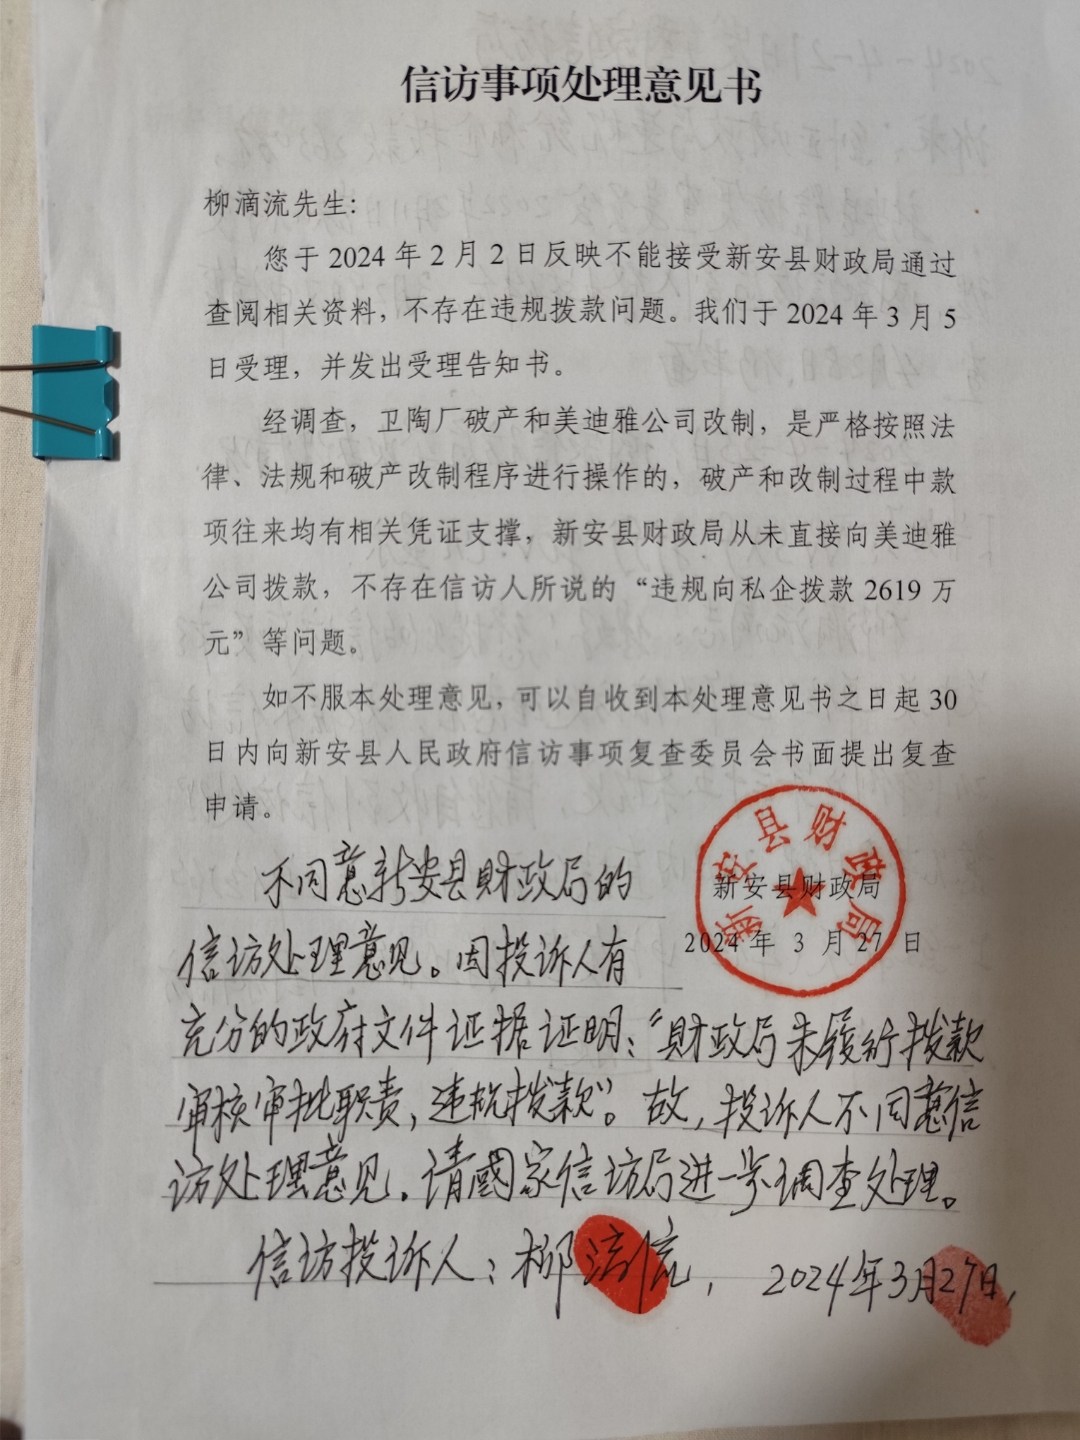 信访事项处理意见书
柳滴流先生:
您于 2024 年 2 月 2 日反映不能接受新安县财政局通过
查阅相关资料，不存在违规拨款问题。我们于 2024 年 3 月 5
日受理，并发出受理告知书。
经调查，卫陶厂破产和美迪雅公司改制，是严格按照法
律、法规和破产改制程序进行操作的，破产和改制过程中款
项往来均有相关凭证支撑，新安县财政局从未直接向美迪雅
公司拨款，不存在信访人所说的“违规向私企拨款 2619 万
元”等问题。
如不服本处理意见，可以自收到本处理意见书之日起 30
日内向新安县人民政府信访事项复查委员会书面提出复查
申请。
新安县财政局
新安县财政局
2024 年 3 月 27 日
不同意新安县财政局的
信访处理意见。因投诉人有
充分的政府文件证据证明：“财政局未履行拨款
审核审批职责，违规拨款”。故，投诉人不同意信
访处理意见。请國家信访局进一步调查处理。
信访投诉人：柳
2024年3月27日，